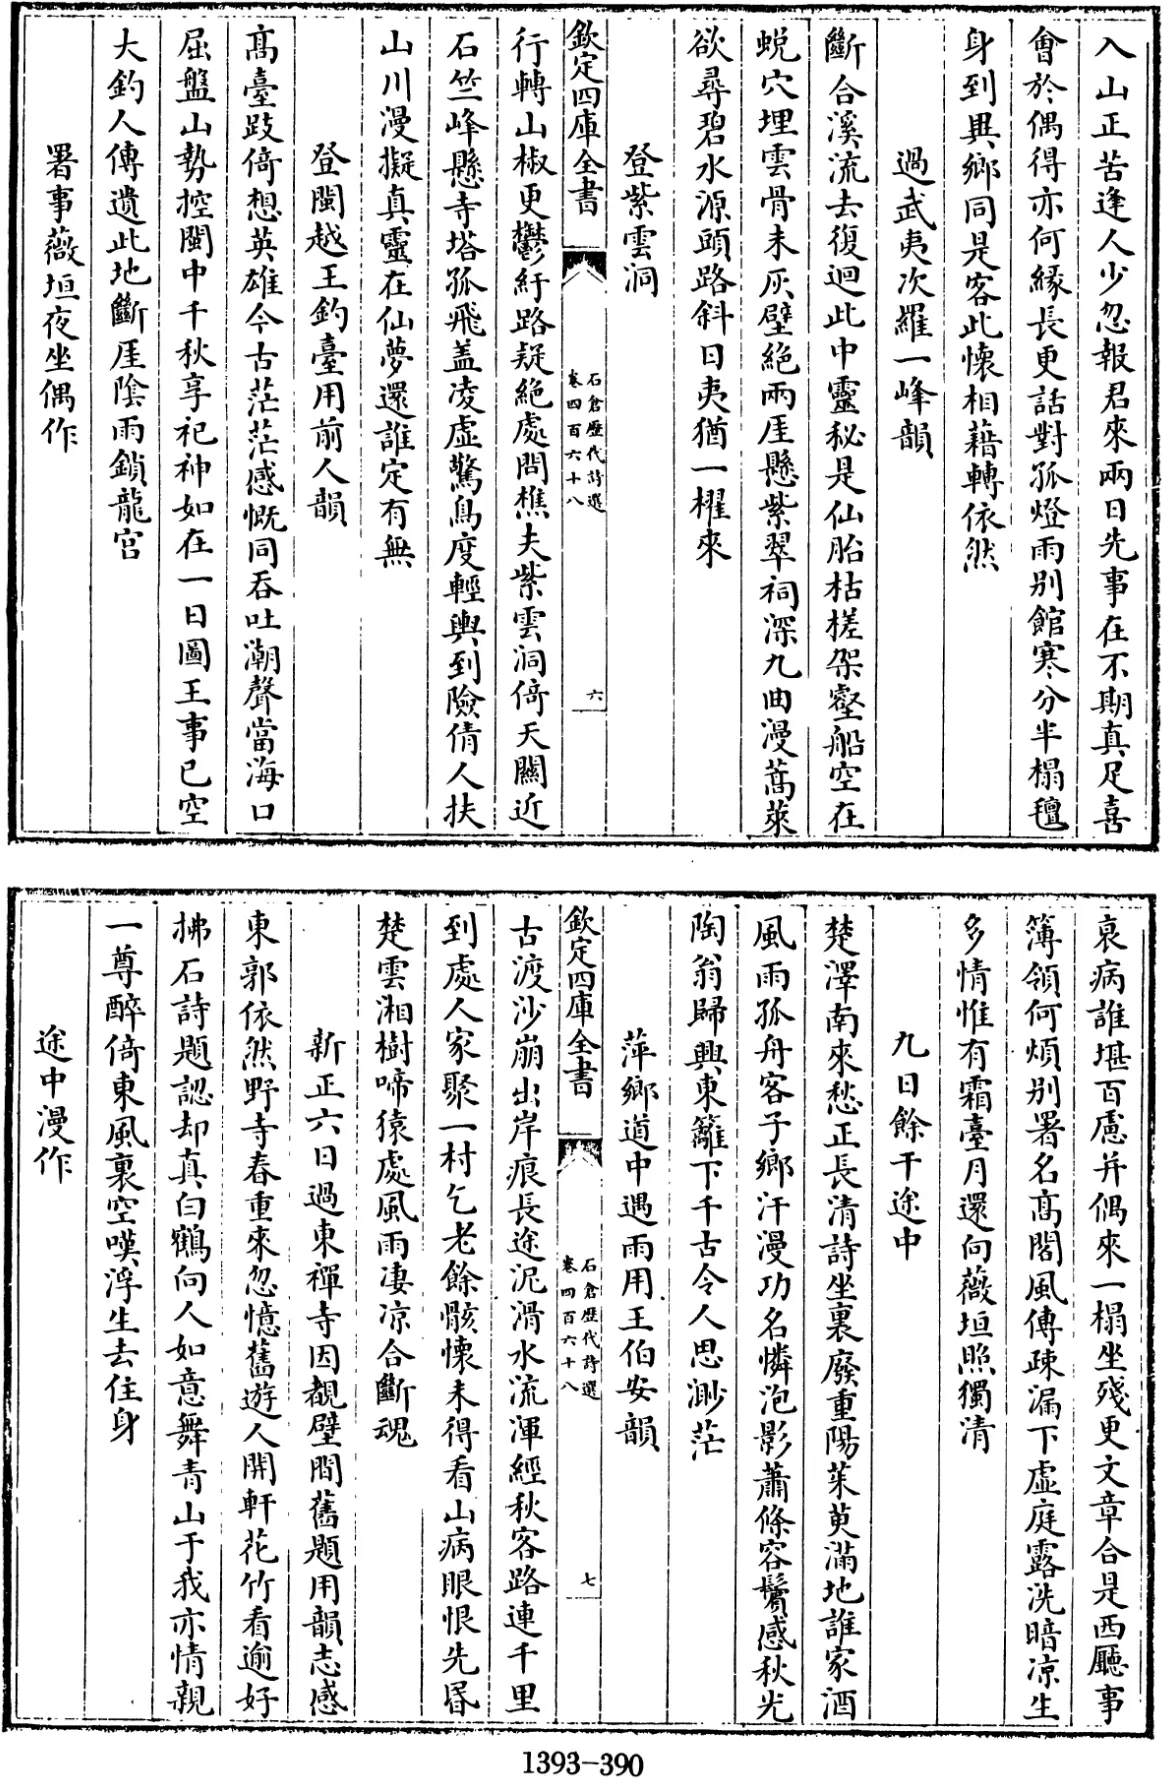 入山正苦逢人少忽報君來兩日先事在不期真足喜
會於偶得亦何緣長更話對孤燈雨别館寒分半榻氊
身到異鄉同是客此懷相藉轉依然
過武夷次羅一峰韻
斷合溪流去復迴此中靈秘是仙胎枯槎架壑船空在
蛻穴埋雲骨未灰壁絶兩厓懸紫翠祠深九曲漫蒿萊
欲尋碧水源頭路斜日夷猶一櫂來
登紫雲洞
欽定四庫全書
石倉歷代詩選
卷四百六十八
六
行轉山椒更鬱紆路疑絶處問樵夫紫雲洞倚天關近
石竺峰懸寺塔孤飛盖凌虛驚鳥度輕輿到險倩人扶
山川漫擬真靈在仙夢還誰定有無
登閩越王釣臺用前人韻
髙臺跂倚想英雄今古茫茫感慨同吞吐潮聲當海口
屈盤山勢控閩中千秋享祀神如在一日圖王事已空
大釣人傳遺此地斷厓陰雨鎖龍宫
署事薇垣夜坐偶作
衰病誰堪百慮并偶來一榻坐殘更文章合是西廳事
簿領何煩别署名髙閣風傳疎漏下虚庭露洗暗凉生
多情惟有霜臺月還向薇垣照獨清
九日餘干途中
楚澤南來愁正長清詩坐裏廢重陽茱萸滿地誰家酒
風雨孤舟客子鄉汗漫功名憐泡影蕭條容鬢感秋光
陶翁歸興東籬下千古令人思渺茫
萍鄉道中遇雨用王伯安韻
欽定四庫全書
石倉歷代詩選
卷四百六十八
七
古渡沙崩出岸痕長途泥滑水流渾經秋客路連千里
到處人家聚一村乞老餘骸懐未得看山病眼恨先昏
楚雲湘樹啼猿處風雨凄凉合斷魂
新正六日過東禪寺因覩壁間舊題用韻志感
東郭依然野寺春重來忽憶舊遊人開軒花竹看逾好
拂石詩題認却真白鶴向人如意舞青山于我亦情親
一尊醉倚東風裏空嘆浮生去住身
途中漫作
1393-390